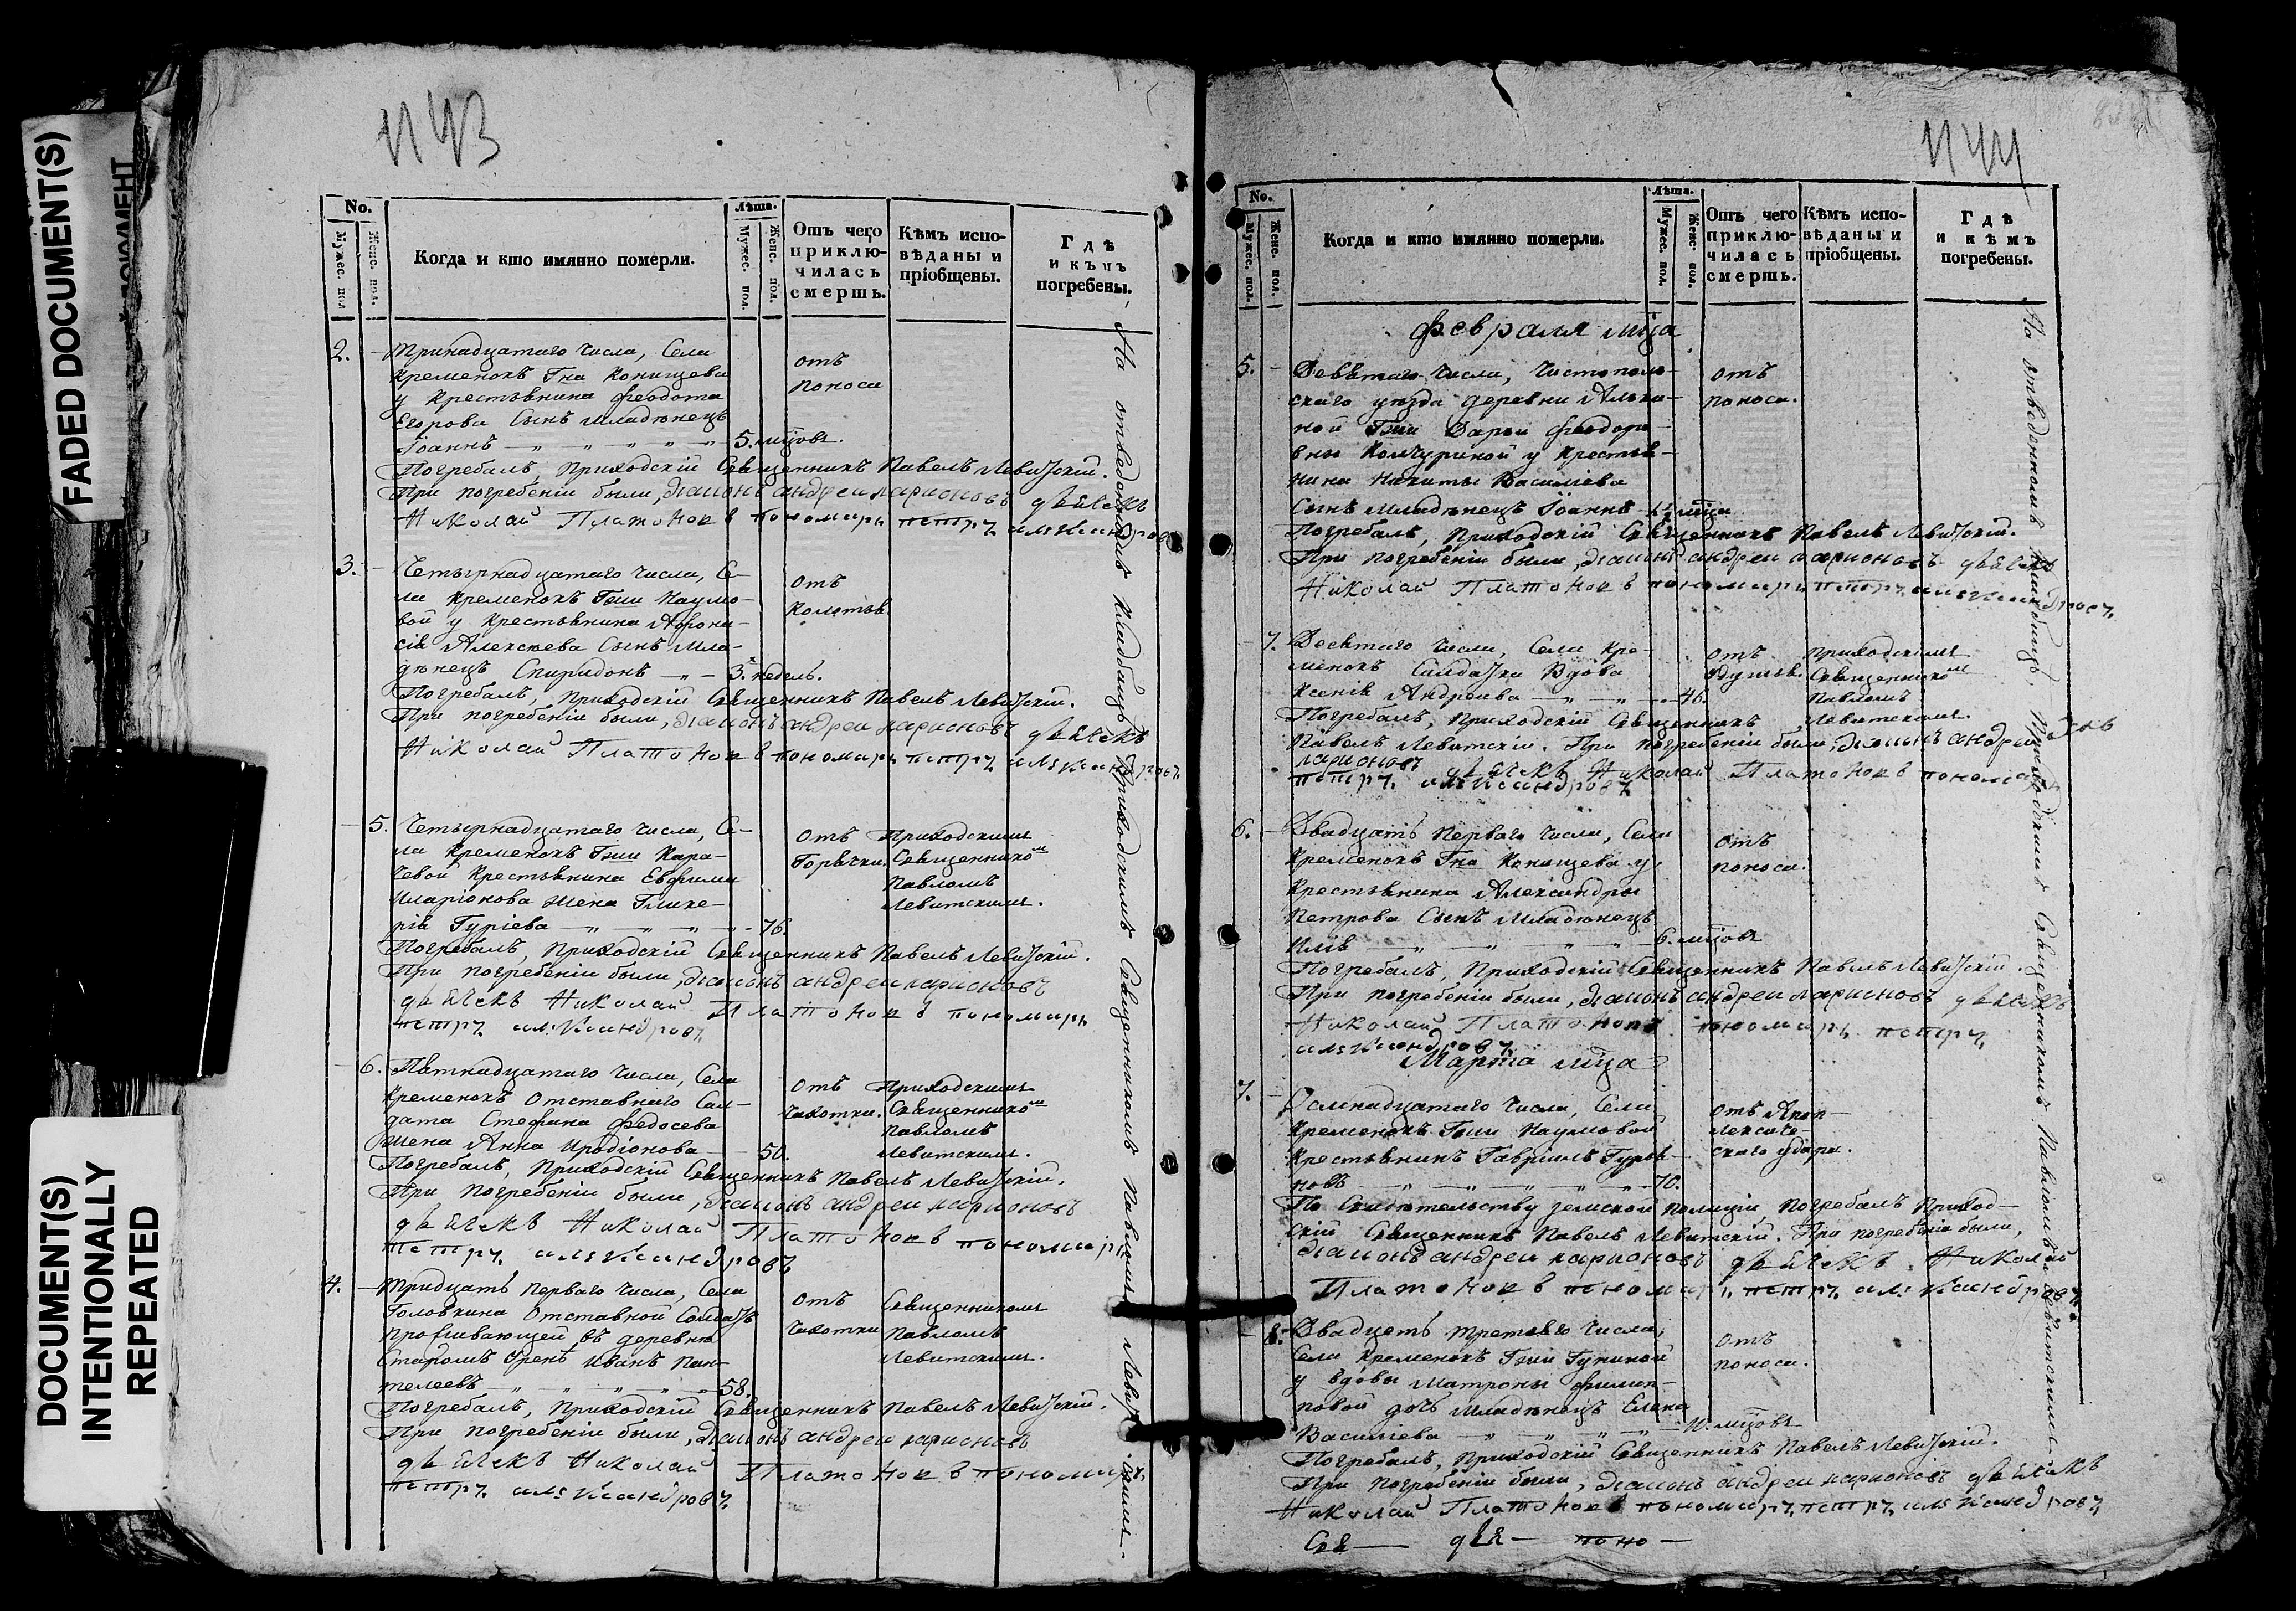 FADED DOCUMENT(S)
DOCUMENT(S)
INTENTIONALLY
REPEATED
1143
No.
Мужес. пол
Женс. пол.
Когда и кто имянно померли.
Лѣта.
Мужес. пол.
Женс. пол.
Отъ чего
приклю-
чилась
смерть.
Кѣмъ испо-
вѣданы и
пріобщены.
Гдѣ
и кѣмъ
погребены.
2. Тринадцатаго числа, Села
Кременокъ Гна Конищева
у крестьянина Феодота
Егорова Сынъ младѣнецъ
Іоаннъ 5. мцовъ.
отъ
поноса
Погребалъ, Приходскій Священникъ Павелъ Левитскій.
При погребеніи были, діаконъ андреи ларионовъ дьячекъ
Николай Платоновъ пономарь петръ александровъ
3. Четырнадцатаго числа, Се-
ла Кременокъ Гжи Наумо-
вой у крестьянина Афона-
сія Алексѣева Сынъ мла-
дѣнецъ Спиридонъ 3. недель.
отъ
колотья
Погребалъ, Приходскій Священникъ Павелъ Левитскій.
При погребеніи были, діаконъ андреи ларионовъ дьячекъ
Николай Платоновъ пономарь петръ александровъ
5. Четырнадцатаго числа, Се-
ла Кременокъ Гжи Кара-
чевой крестьянина Евфима
Иларіонова жена Глике-
рія Гуріева 76.
отъ
Горячки.
Приходскимъ
Священникомъ
Павломъ
Левитскимъ.
Погребалъ, Приходскій Священникъ Павелъ Левитскій.
При погребеніи были, діаконъ андреи ларионовъ
дьячекъ Николай Платоновъ пономарь
петръ александровъ
6. Пятнадцатаго числа, Села
Кременокъ Отставнаго Сал-
дата Стефана Федосева
жена Анна Иродіонова 50.
отъ
чахотки.
Приходскимъ
Священникомъ
Павломъ
Левитскимъ.
Погребалъ, Приходскій Священникъ Павелъ Левитскій.
При погребеніи были, діаконъ андреи ларионовъ
дьячекъ Николай Платоновъ пономарь
петръ александровъ
4. Тридцать перваго числа, Села
Головкина Отставной Солдатъ
проживающей въ деревнѣ
Старомъ Уренѣ Иванъ Пан-
телеевъ 58.
отъ
чахотки
Священникомъ
Павломъ
Левитскимъ.
Погребалъ, Приходскій Священникъ Павелъ Левитскій.
При погребеніи были, діаконъ андреи ларионовъ
дьячекъ Николай Платоновъ пономарь
петръ александровъ
На отведенномъ Кладбищѣ Приходскимъ Священникомъ Павломъ
1144
No.
Мужес. пол.
Женс. пол.
Когда и кто имянно померли.
Лѣта.
Мужес. пол.
Женс. пол.
Отъ чего
приклю-
чилась
смерть.
Кѣмъ испо-
вѣданы и
пріобщены.
Гдѣ
и кѣмъ
погребены.
Февраля мца
5. Девятаго числа, Чистополь-
скаго уѣзда деревни
ной Гжи Дарьи Феодоро-
вны у крестья-
нина Никиты Василіева
Сынъ младѣнецъ Іоаннъ
отъ
поноса.
Погребалъ, Приходскій Священникъ Павелъ Левитскій.
При погребеніи были, діаконъ андреи ларионовъ дьячекъ
Николай Платоновъ пономарь петръ александровъ
7. Десятаго числа, Села Кре-
менокъ Салдатка Вдова
Ксенія Андреева 46.
отъ
удушья.
Приходскимъ
Священникомъ
Павломъ
Левитскимъ.
Погребалъ, Приходскій Священникъ
Павелъ Левитскій. При погребеніи были, діаконъ андреи
ларионовъ дьячекъ Николай Платоновъ пономарь
петръ александровъ
6. Двадцать перваго числа, Села
Кременокъ Гна Конищева у
крестьянина Александры
Петрова Сынъ младѣнецъ
Илія 6. мцовъ
отъ
поноса.
Погребалъ, Приходскій Священникъ Павелъ Левитскій.
При погребеніи были, діаконъ андреи ларионовъ дьячекъ
Николай Платоновъ пономарь петръ
александровъ
Марта мца
7. Осмнадцатаго числа, Села
Кременокъ Гжи Наумовой
крестьянинъ Гавріилъ Гурья-
новъ 70.
отъ Апоп-
лексиче-
скаго удара.
По Свидѣтельству земской полиціи, погребалъ Приход-
скій Священникъ Павелъ Левитскій. При погребеніи были,
діаконъ андреи ларионовъ дьячекъ Николай
Платоновъ пономарь петръ александровъ
8. Двадцеть третьяго числа,
Села Кременокъ Гжи
у вдовы Матроны Филип-
повой дочь младѣнецъ Елена
Василіева 10. мцовъ
отъ
поноса.
Погребалъ, Приходскій Священникъ Павелъ Левитскій.
При погребеніи были, діаконъ андреи ларионовъ дьячекъ
Николай Платоновъ пономарь петръ александровъ
Свя— дья— поно—
На отведенномъ Кладбищѣ, Приходскимъ Священникомъ Павломъ Левитскимъ.